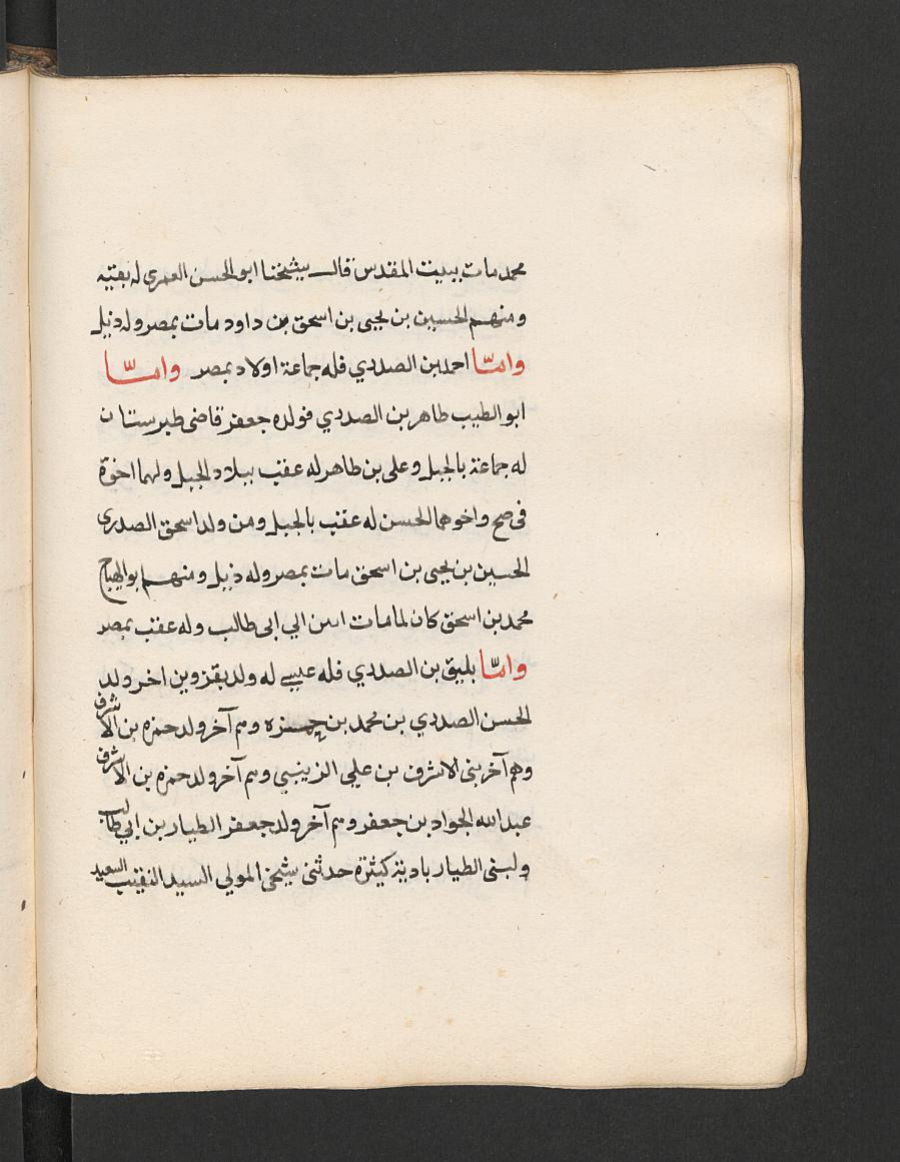 محمد مات ببيت المقدس قال شيخنا ابو الحسن العمرى له بقيه
ومنهم الحسين بن يحيى بن اسحق بن داود مات بمصر وله ذيل
واما احمد بن الصدري فله جماعة اولاد بمصر واما
ابو الطيب طاهر بن الصدري فولده جعفر قاضى طبرستان
له جماعة بالجبل وعلى بن طاهر له عقب ببلاد الجبل ولهما اخوة
فى صح واخوهما الحسن له عقب بالجبل ومن ولد اسحق الصدرى
الحسين بن يحيى بن اسحق مات بمصر وله ذيل ومنهم ابو الهياج
محمد بن اسحق كان لمامات ابى طالب وله عقب بمصر
واما بليق بن الصدري فله له ولد بقزوين اخر ولد
الحسن الصدري بن محمد بن حمزه وهم آخر ولد حمزه بن الاشرف
وهم آخر بنى الاشرف بن علي الزينبي وهم آخر ولد حمزه بن الاشرف
عبدالله الجواد بن جعفر وهم آخر ولد جعفر الطيار بن ابي طالب
ولبنى الطيار بادية كثيرة حدثنى شيخى المولي السيد النقيب السعيد